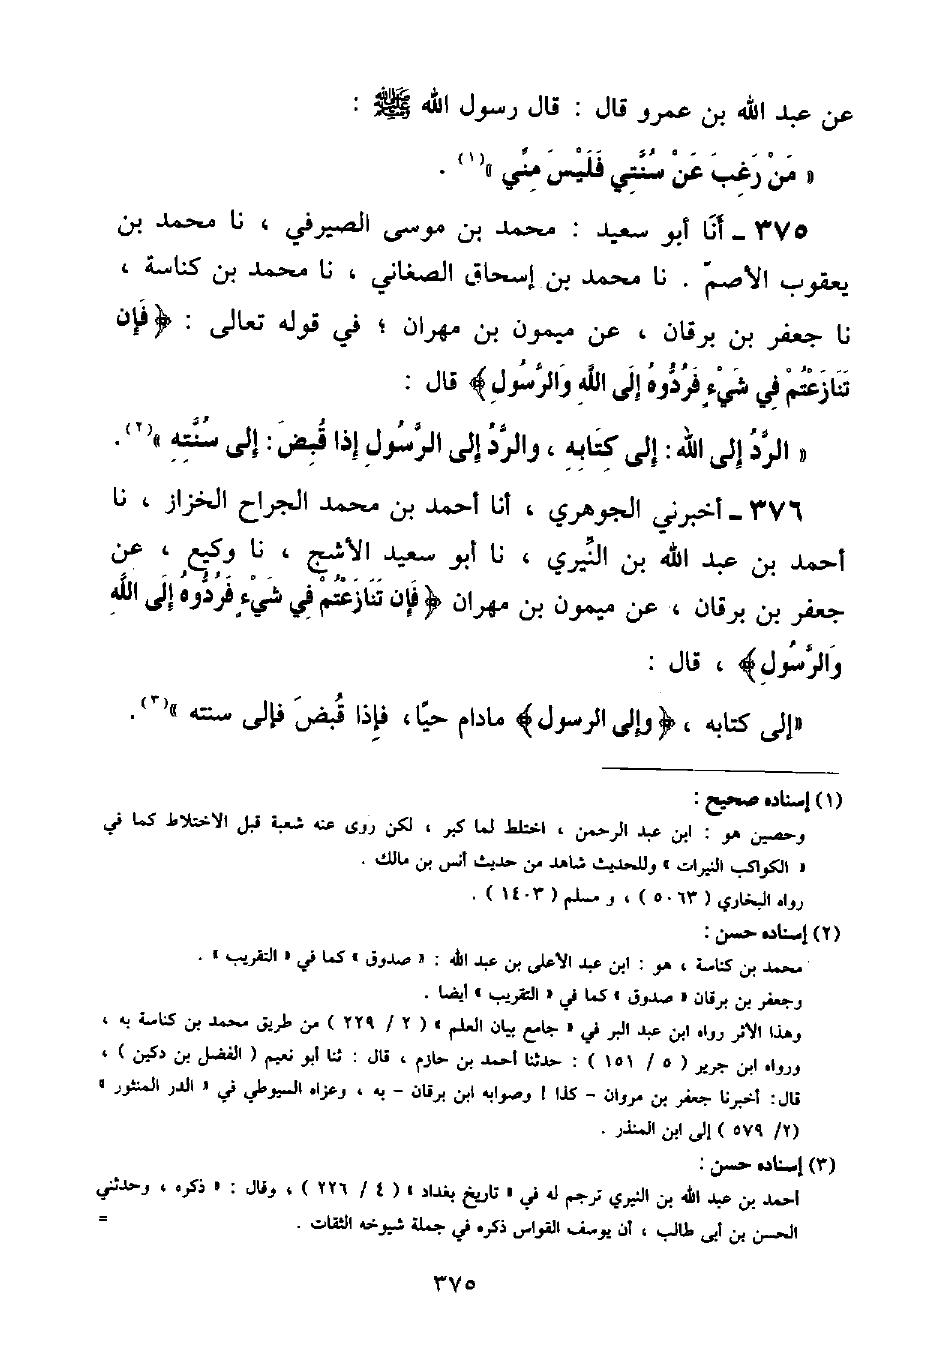 عن عبد الله بن عمرو قال : قال رسول الله ﷺ :
« مَنْ رَغِبَ عَنْ سُنَّتِي فَلَيْسَ مِنِّي »(١) .
٣٧٥ ـ أَنَا أبو سعيد : محمد بن موسى الصيرفي ، نا محمد بن
يعقوب الأصمّ . نا محمد بن إسحاق الصغاني ، نا محمد بن كناسة ،
نا جعفر بن برقان ، عن ميمون بن مهران ؛ في قوله تعالى : ﴿فَإِن
تَنَازَعْتُمْ فِي شَيْءٍ فَرُدُّوهُ إِلَى اللَّهِ وَالرَّسُولِ﴾ قال :
« الرَّدُ إلى الله : إلى كِتَابِهِ ، والرَّدُ إلى الرَّسُولِ إذا قُبِضَ : إلى سُنَّتِهِ »(٢).
٣٧٦ ـ أخبرني الجوهري ، أنا أحمد بن محمد الجراح الخزاز ، نا
أحمد بن عبد الله بن النِّيري ، نا أبو سعيد الأشج ، نا وكيع ، عن
جعفر بن برقان ، عن ميمون بن مهران ﴿ فَإِن تَنَازَعْتُمْ فِي شَيْءٍ فَرُدُّوهُ إِلَى اللَّهِ
وَالرَّسُولِ﴾ ، قال :
«إلى كتابه ، ﴿وإلى الرسول﴾ مادام حيًّا، فإذا قُبِضَ فإلى سنته »(٣).
(١) إسناده صحيح :
وحصين هو : ابن عبد الرحمن ، اختلط لما كبر ، لكن روى عنه شعبة قبل الاختلاط كما في
« الكواكب النيرات » وللحديث شاهد من حديث أنس بن مالك .
رواه البخاري ( ٥٠٦٣ ) ، و مسلم ( ١٤٠٣ ) .
(٢) إسناده حسن :
محمد بن كناسة ، هو : ابن عبد الأعلى بن عبد الله : « صدوق » كما في « التقريب » .
وجعفر بن برقان « صدوق » كما في « التقريب » أيضا .
وهذا الأثر رواه ابن عبد البر في « جامع بيان العلم » ( ٢ / ٢٢٩ ) من طريق محمد بن كناسة به ،
ورواه ابن جرير ( ٥ / ١٥١ ) : حدثنا أحمد بن حازم ، قال : ثنا أبو نعيم ( الفضل بن دكين ) ،
قال : أخبرنا جعفر بن مروان - كذا ! وصوابه ابن برقان - به ، وعزاه السيوطي في « الدر المنثور »
(٢/ ٥٧٩ ) إلى ابن المنذر .
(٣) إسناده حسن :
أحمد بن عبد الله بن النيري ترجم له في « تاريخ بغداد » ( ٤ / ٢٢٦ ) ، وقال : « ذكره ، وحدثني
الحسن بن أبى طالب ، أن يوسف القواس ذكره في جملة شيوخه الثقات . =
٣٧٥